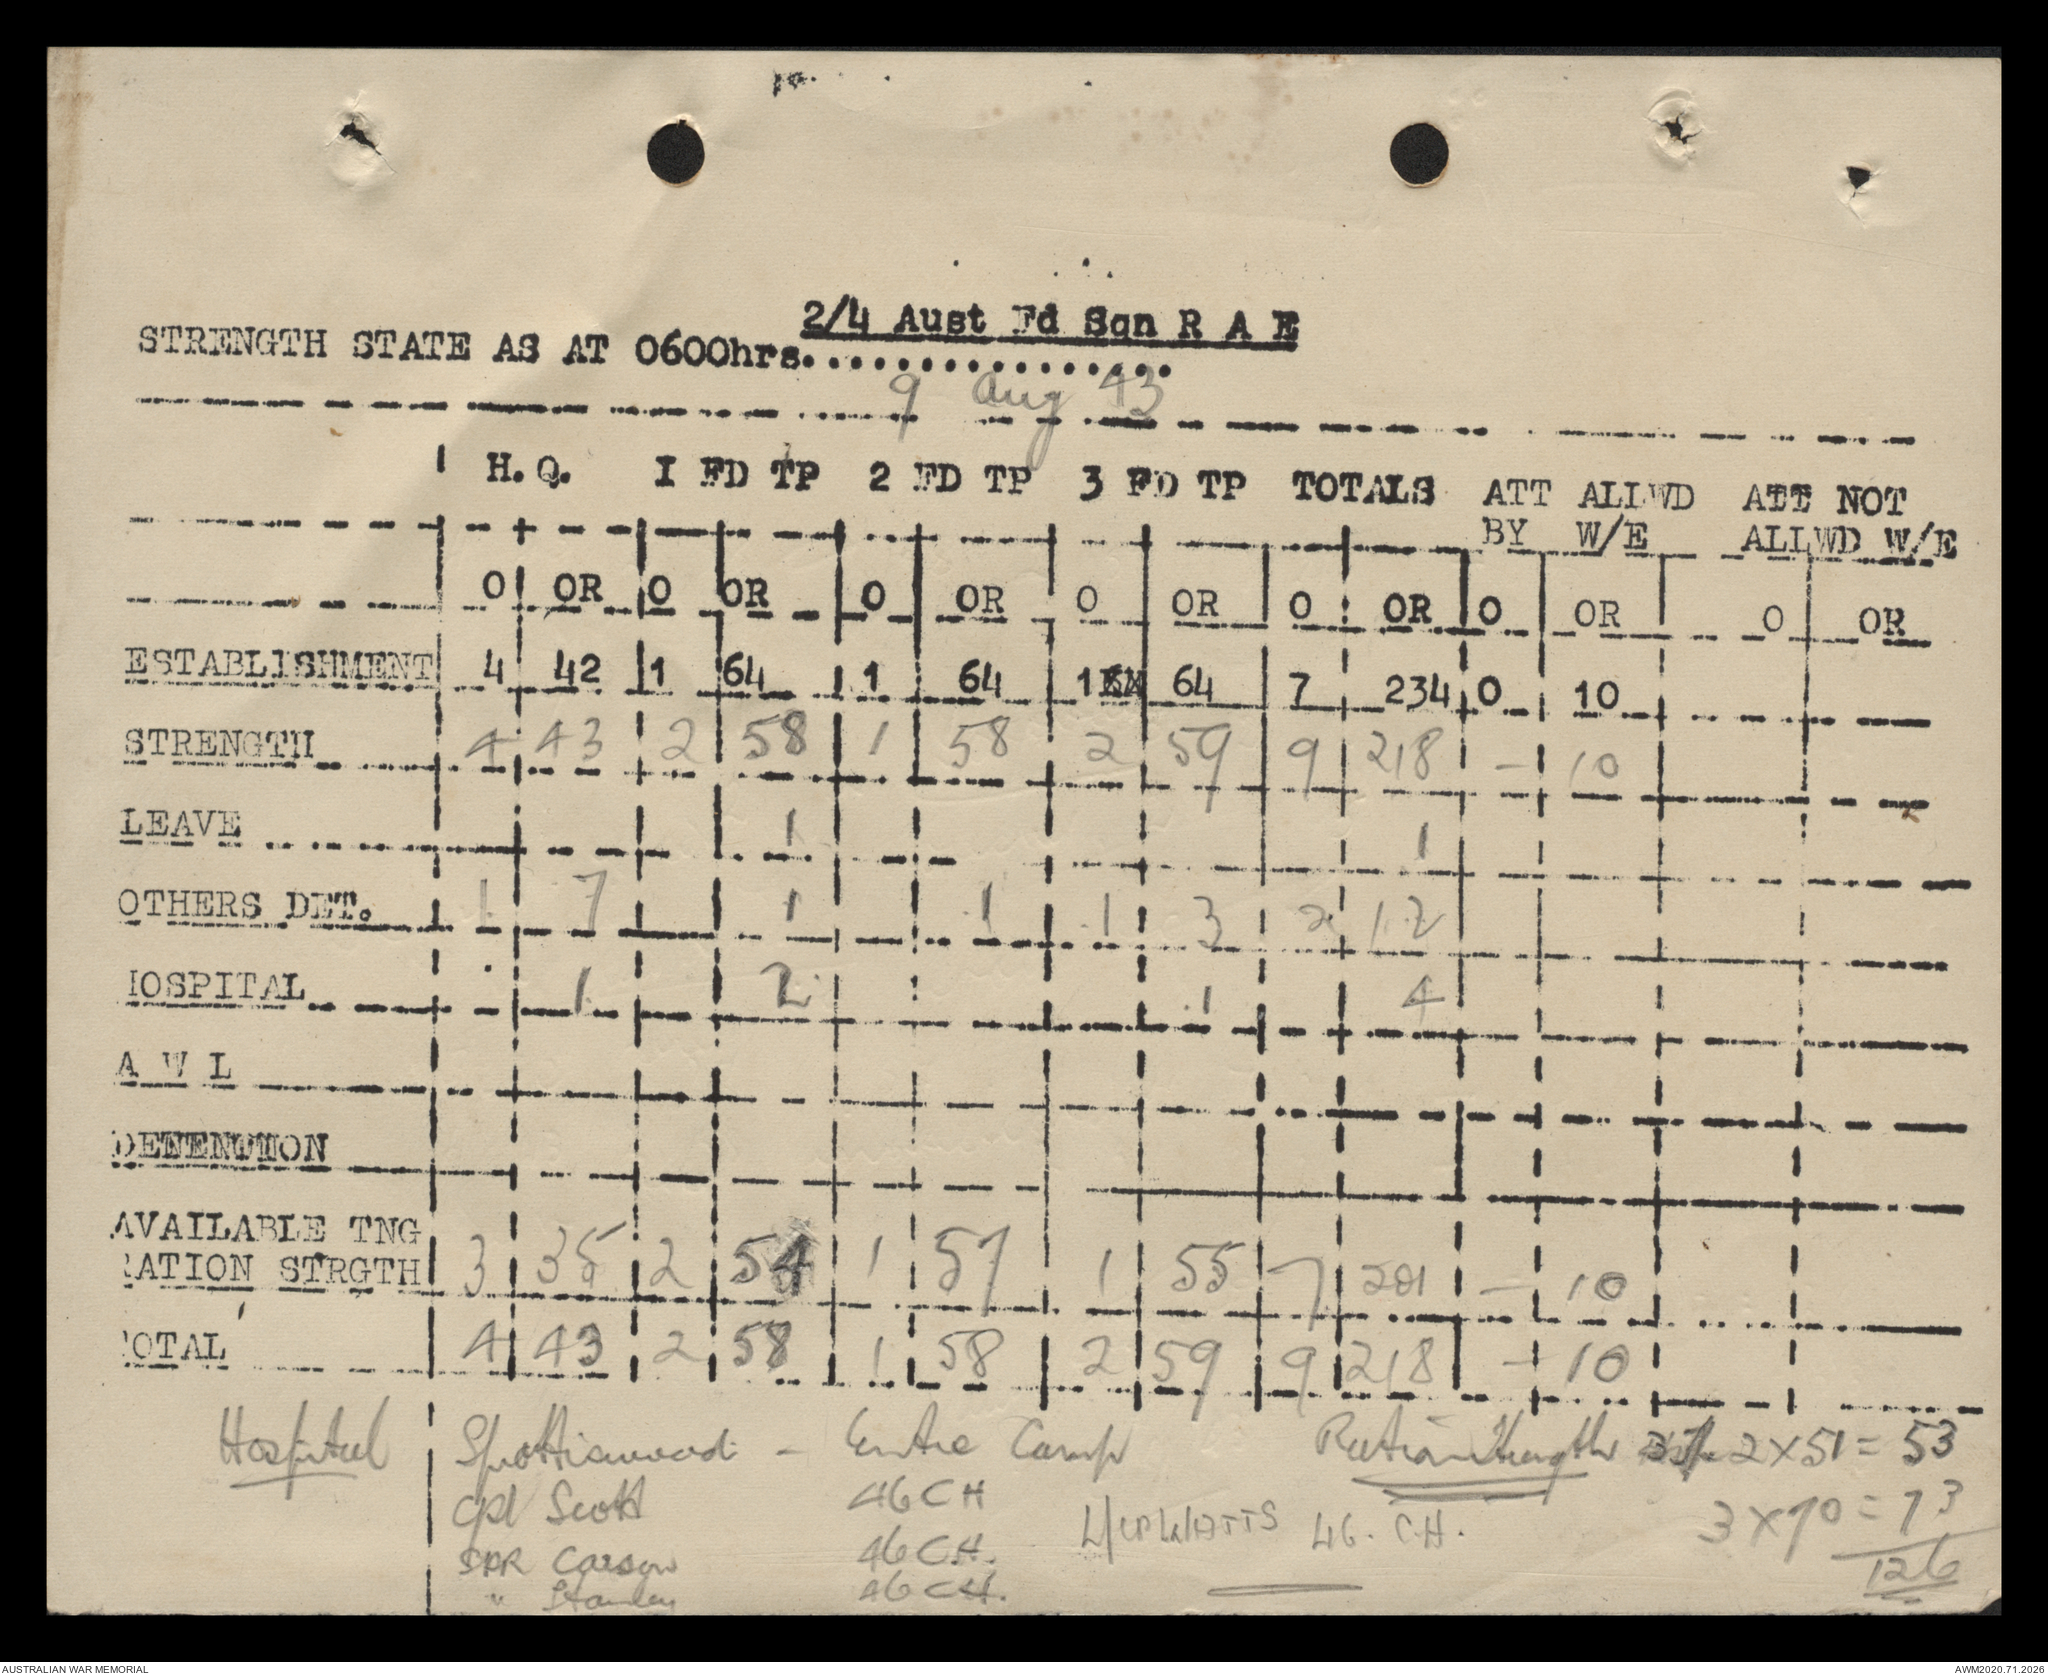 2/4 Aust Fd Sqn R A E
STRENGTH STATE AS AT 0600hrs................
9 Aug 43
H.Q. I FD TP 2 FD TP 3 FD TP TOTALS ATT ALLWD ATT NOT
BY W/E ALLWD W/E
O OR O OR O OR O OR O OR O OR O OR
ESTABLISHMENT 4 42 1 64 1 64 1 64 7 234 0 10
STRENGTH 4 43 2 58 1 58 2 59 9 218 - 10
LEAVE 1 1
OTHERS DET. 1 7 1 1 1 3 2 12
HOSPITAL 1 2 1 4
A W L
DETENTION
AVAILABLE TNG
RATION STRGTH 3 35 2 54 1 57 1 55 7 201 - 10
TOTAL 4 43 2 58 1 58 2 59 9 218 - 10
Hospital Spottiswood - Entre Camp Ration Strength 2 x 51 = 53
Cpl Scott 46 CH 3 x 70 = 73
L/CPL WATTS 46. C.H.
SPR Carson 46 C.H. 126
" Stanley 46 CH.
AUSTRALIAN WAR MEMORIAL AWM2020.71.2026